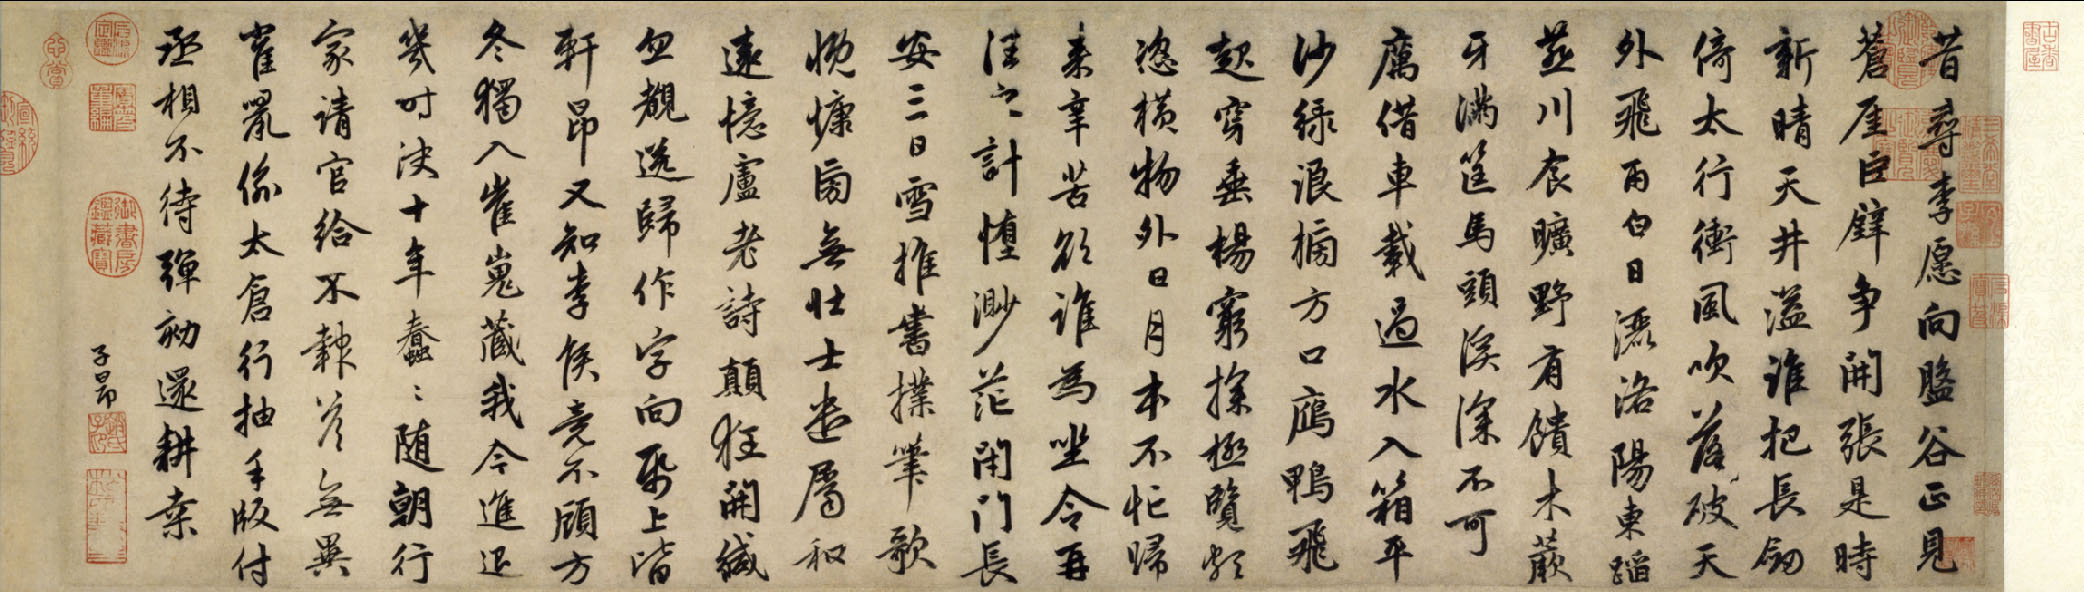 昔尋李愿向盤谷正見
蒼崖巨璧争開張是時
新晴天井溢誰把長劒
倚太行衝風吹落破天
外飛雨白日灑洛陽東蹈
燕川食曠野有饋木蕨
牙滿筐馬頭溪深不可
厲借車載過水入箱平
沙緑浪榜方口鴈鴨飛
起穿垂楊窮探極覽頗
恣橫物外日月本不忙歸
来辛苦欲誰為坐令再
往之計墮渺茫閉門長
安三日雪推書撲筆歌
慨慷旁無壯士遣屬和
遠憶盧老詩顛狂開緘
忽覩送歸作字向紙上皆
軒昂又知李侯竟不顧方
冬獨入崔嵬藏我今進退
幾时决十年蠢〻随朝行
家請官給不報荅無異
雀鼠偷太倉行抽手版付
丞相不待彈劾還耕桑
子昂
御書房鑑藏寶